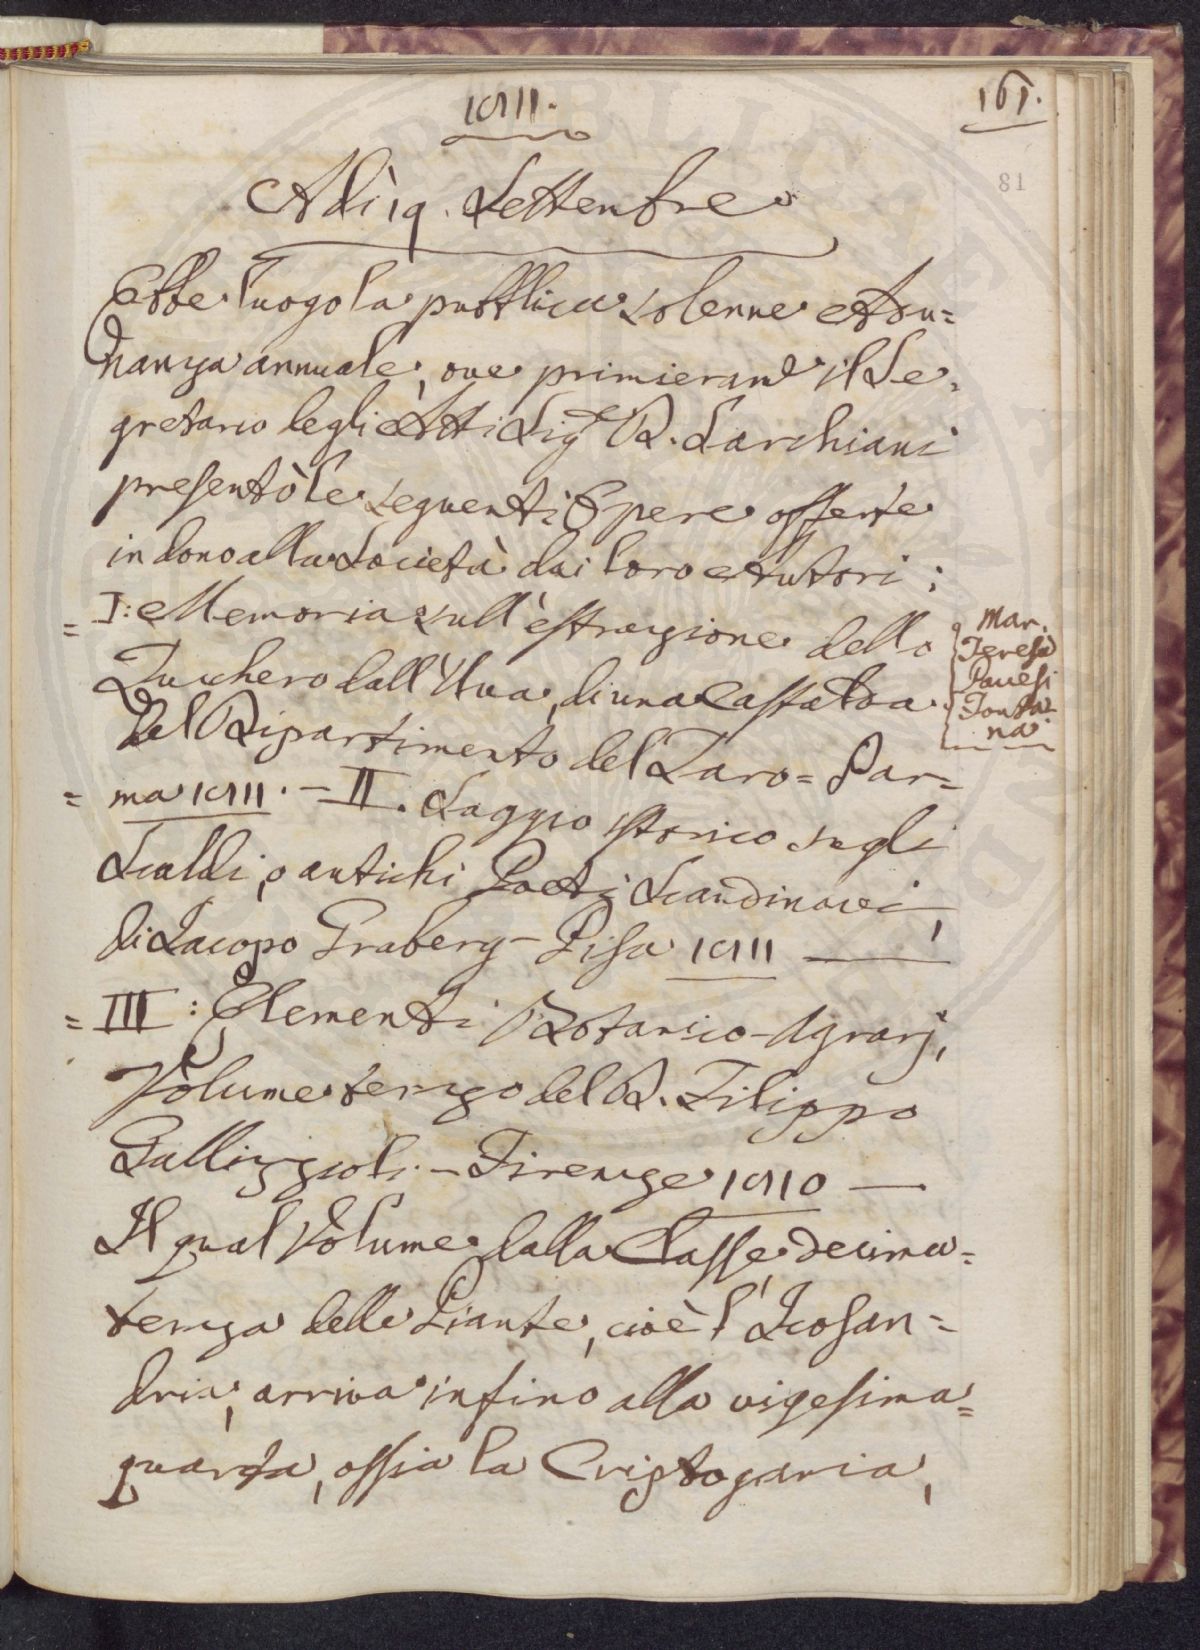 1811.
161.
81
Adì 19. Settembre
Ebbe luogo la pubblica solenne Adu=
nanza annuale, ove primieram.e il Se=
gretario degli Atti Sig.re D. Sarchiani
presentò le seguenti Opere offerte
in dono alla Società dai loro Autori:
= I: Memoria sull'estrazione dello
Zucchero dall'Uva, di una Castalda
del Dipartimento del Taro = Par=
= ma 1811. - II. Saggio istorico sugli
Scaldi, o antichi Poeti Scandinavi,
di Jacopo Graberg - Pisa 1811
= III: Elementi Botanico-Agrarj,
Volume terzo del D. Filippo
Gallizzioli - Firenze 1810
Il qual Volume dalla Classe decima=
terza delle Piante, cioè l'Icosan=
dria, arriva infino alla vigesima=
quarta, ossia la Criptogamia,
Mar.
Teresa
Pavesi
Fonta=
na